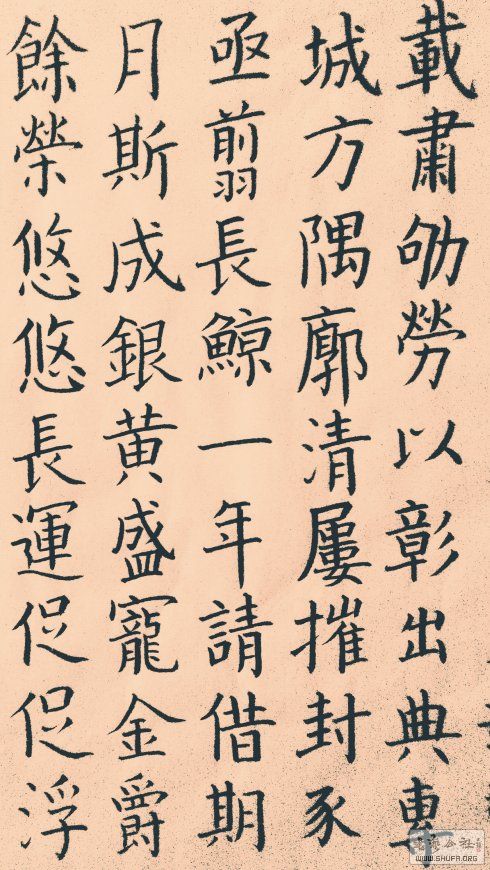 載肅劬勞以彰出典專
城方隅廓清屢摧封豕
亟翦長鯨一年請借期
月斯成銀黃盛寵金爵
餘榮悠悠長運促促浮
WWW.SHUFA.ORG